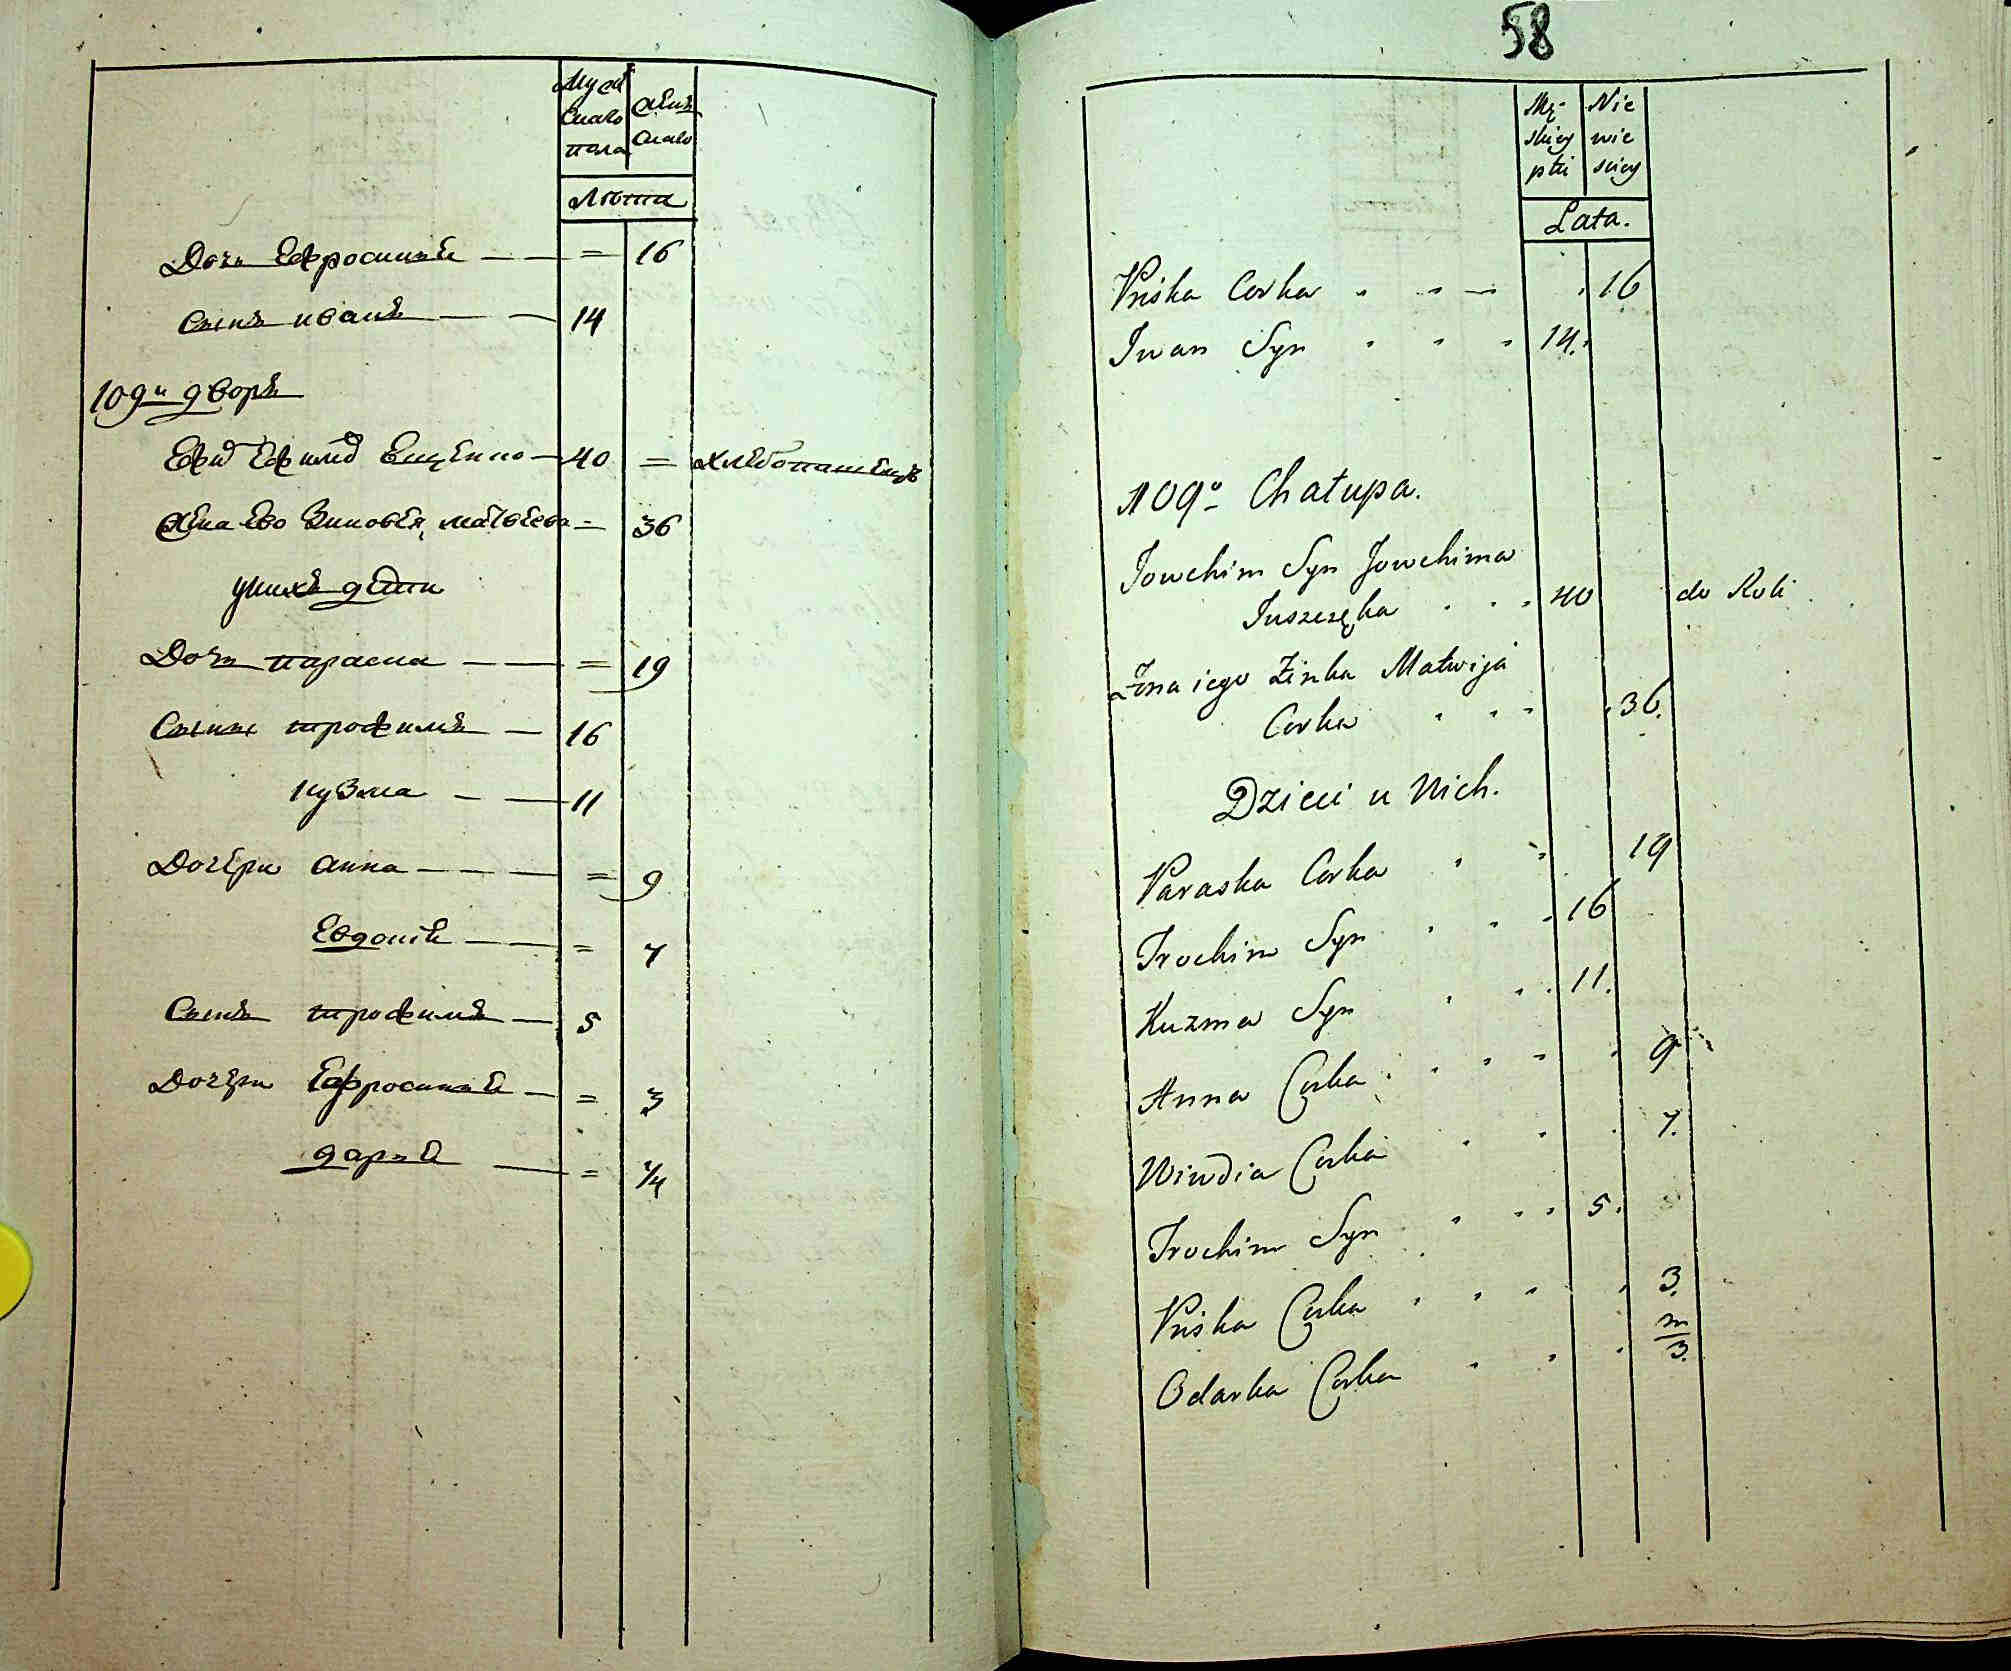 Мужскаго пола
Женскаго
Лѣта
Дочь Ефросинія — — = 16
Сынъ иванъ — — 14
109й дворъ
Ефимъ Ефимов — 40 = хлебопашецъ
Жена Ево Зиновея матвеева = 36
у нихъ дети
Дочь параска — — = 19
Сыны трофимъ — 16
кузма — — 11
Дочери анна — — — = 9
Евдокія — — = 7
Сынъ трофимъ — 5
Дочери Ефросинія — = 3
дарья — = 1/4
58
Mę-
skiey
płci
Nie
wie
sciey
Lata.
Priska Corka 16
Iwan Syn 14.
109o Chałupa.
Jowchim Syn Jowchima
Juszczęka 40 do Roli
Żona iego Zinka Matwija
Corka 36.
Dzieci u Nich.
Paraska Corka 19
Trochim Syn 16
Kuzma Syn 11.
Anna Corka 9
Wiwdia Corka 7.
Trochim Syn 5.
Priska Corka 3.
Odarka Corka m/3.